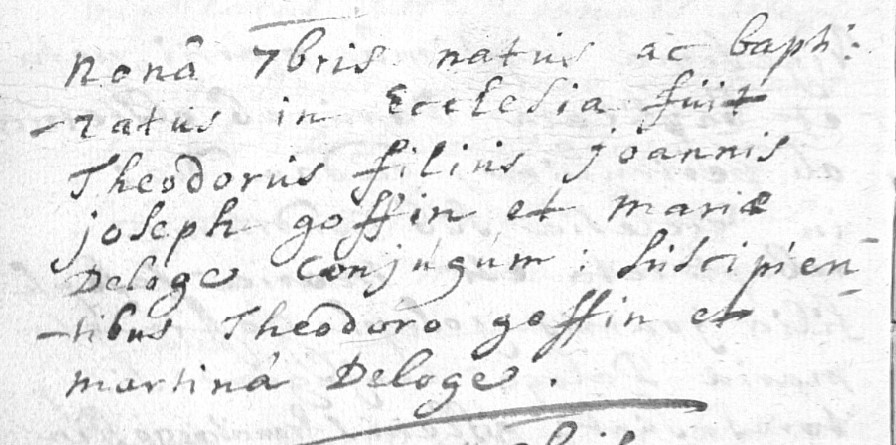 nonâ 7bris natus ac bapti:
-zatus in Ecclesia fuit
Theodorus filius joannis
joseph goffin et mariæ
Deloge conjúgúm : suscipien=
-tibus Theodoro goffin et
martinâ Deloge.